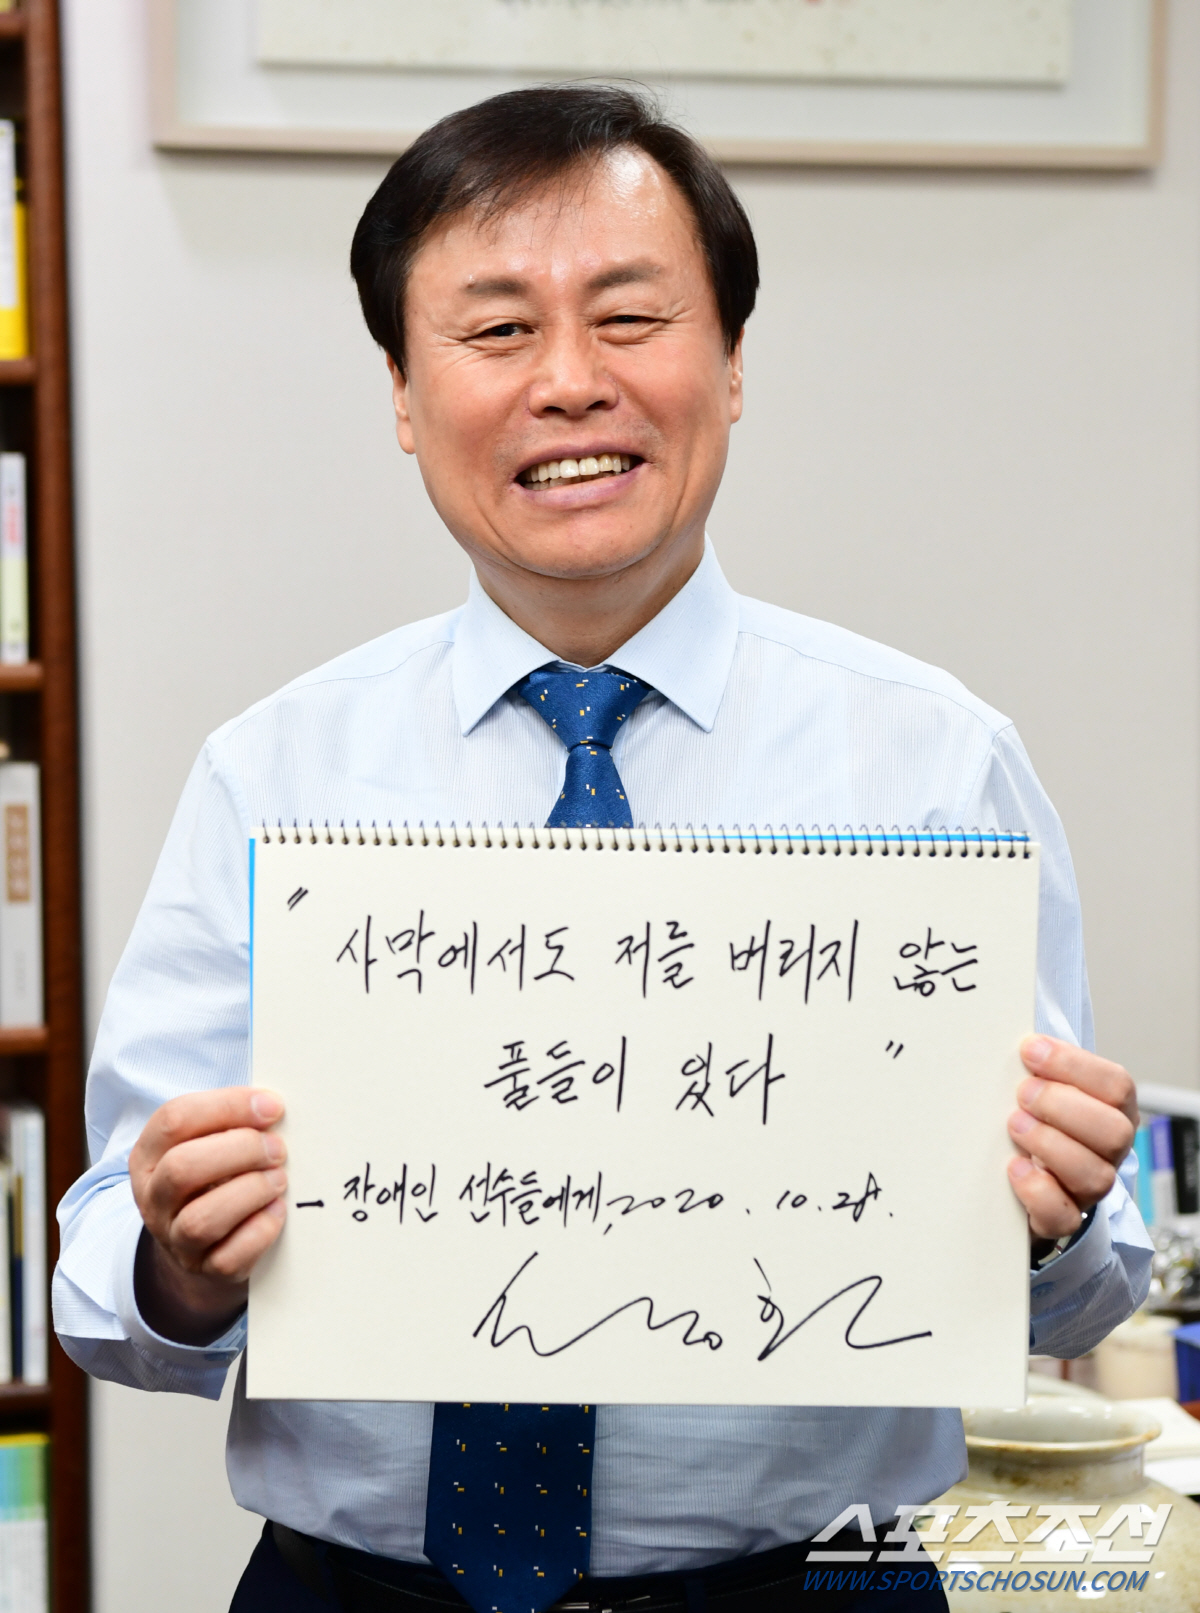 "사막에서도 저를 버리지 않는
풀들이 있다"
- 장애인 선수들에게, 2020. 10. 28.
스포츠조선
WWW.SPORTSCHOSUN.COM